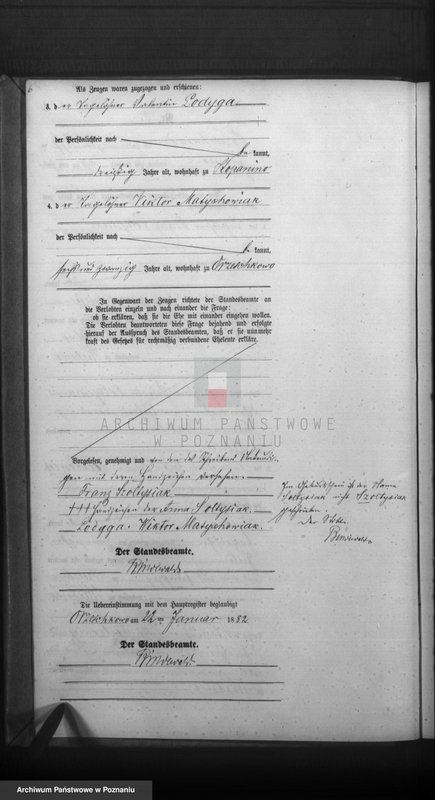 Als Zeugen waren zugezogen und erschienen:
3. der Tagelöhner Valentin Lodyga
der Persönlichkeit nach
be kannt,
dreißig Jahre alt, wohnhaft zu Kopanino
4. der Tagelöhner Viktor Matyschowiak
der Persönlichkeit nach
be kannt,
sechs und zwanzig Jahre alt, wohnhaft zu Orzeschkowo
In Gegenwart der Zeugen richtete der Standesbeamte an
die Verlobten einzeln und nach einander die Frage:
ob sie erklären, daß sie die Ehe mit einander eingehen wollen.
Die Verlobten beantworteten diese Frage bejahend und erfolgte
hierauf der Ausspruch des Standesbeamten, daß er sie nunmehr
kraft des Gesetzes für rechtmäßig verbundene Eheleute erkläre.
ARCHIWUM PAŃSTWOWE
W POZNANIU
Vorgelesen, genehmigt und von den des Schreibens Unkundi-
gen mit deren Handzeichen versehen.
Franz Szoltysiak
+++ Handzeichen der Anna Soltysiak.
Lodyga. Viktor Matyschowiak.
Im Geburtsschein ist der Name
Soltysiak nicht Szoltysiak
geschrieben
Der Standesbeamte.
Die Uebereinstimmung mit dem Hauptregister beglaubigt
Orzeschkowo am 22ten Januar 1882
Der Standesbeamte.
Archiwum Państwowe w Poznaniu